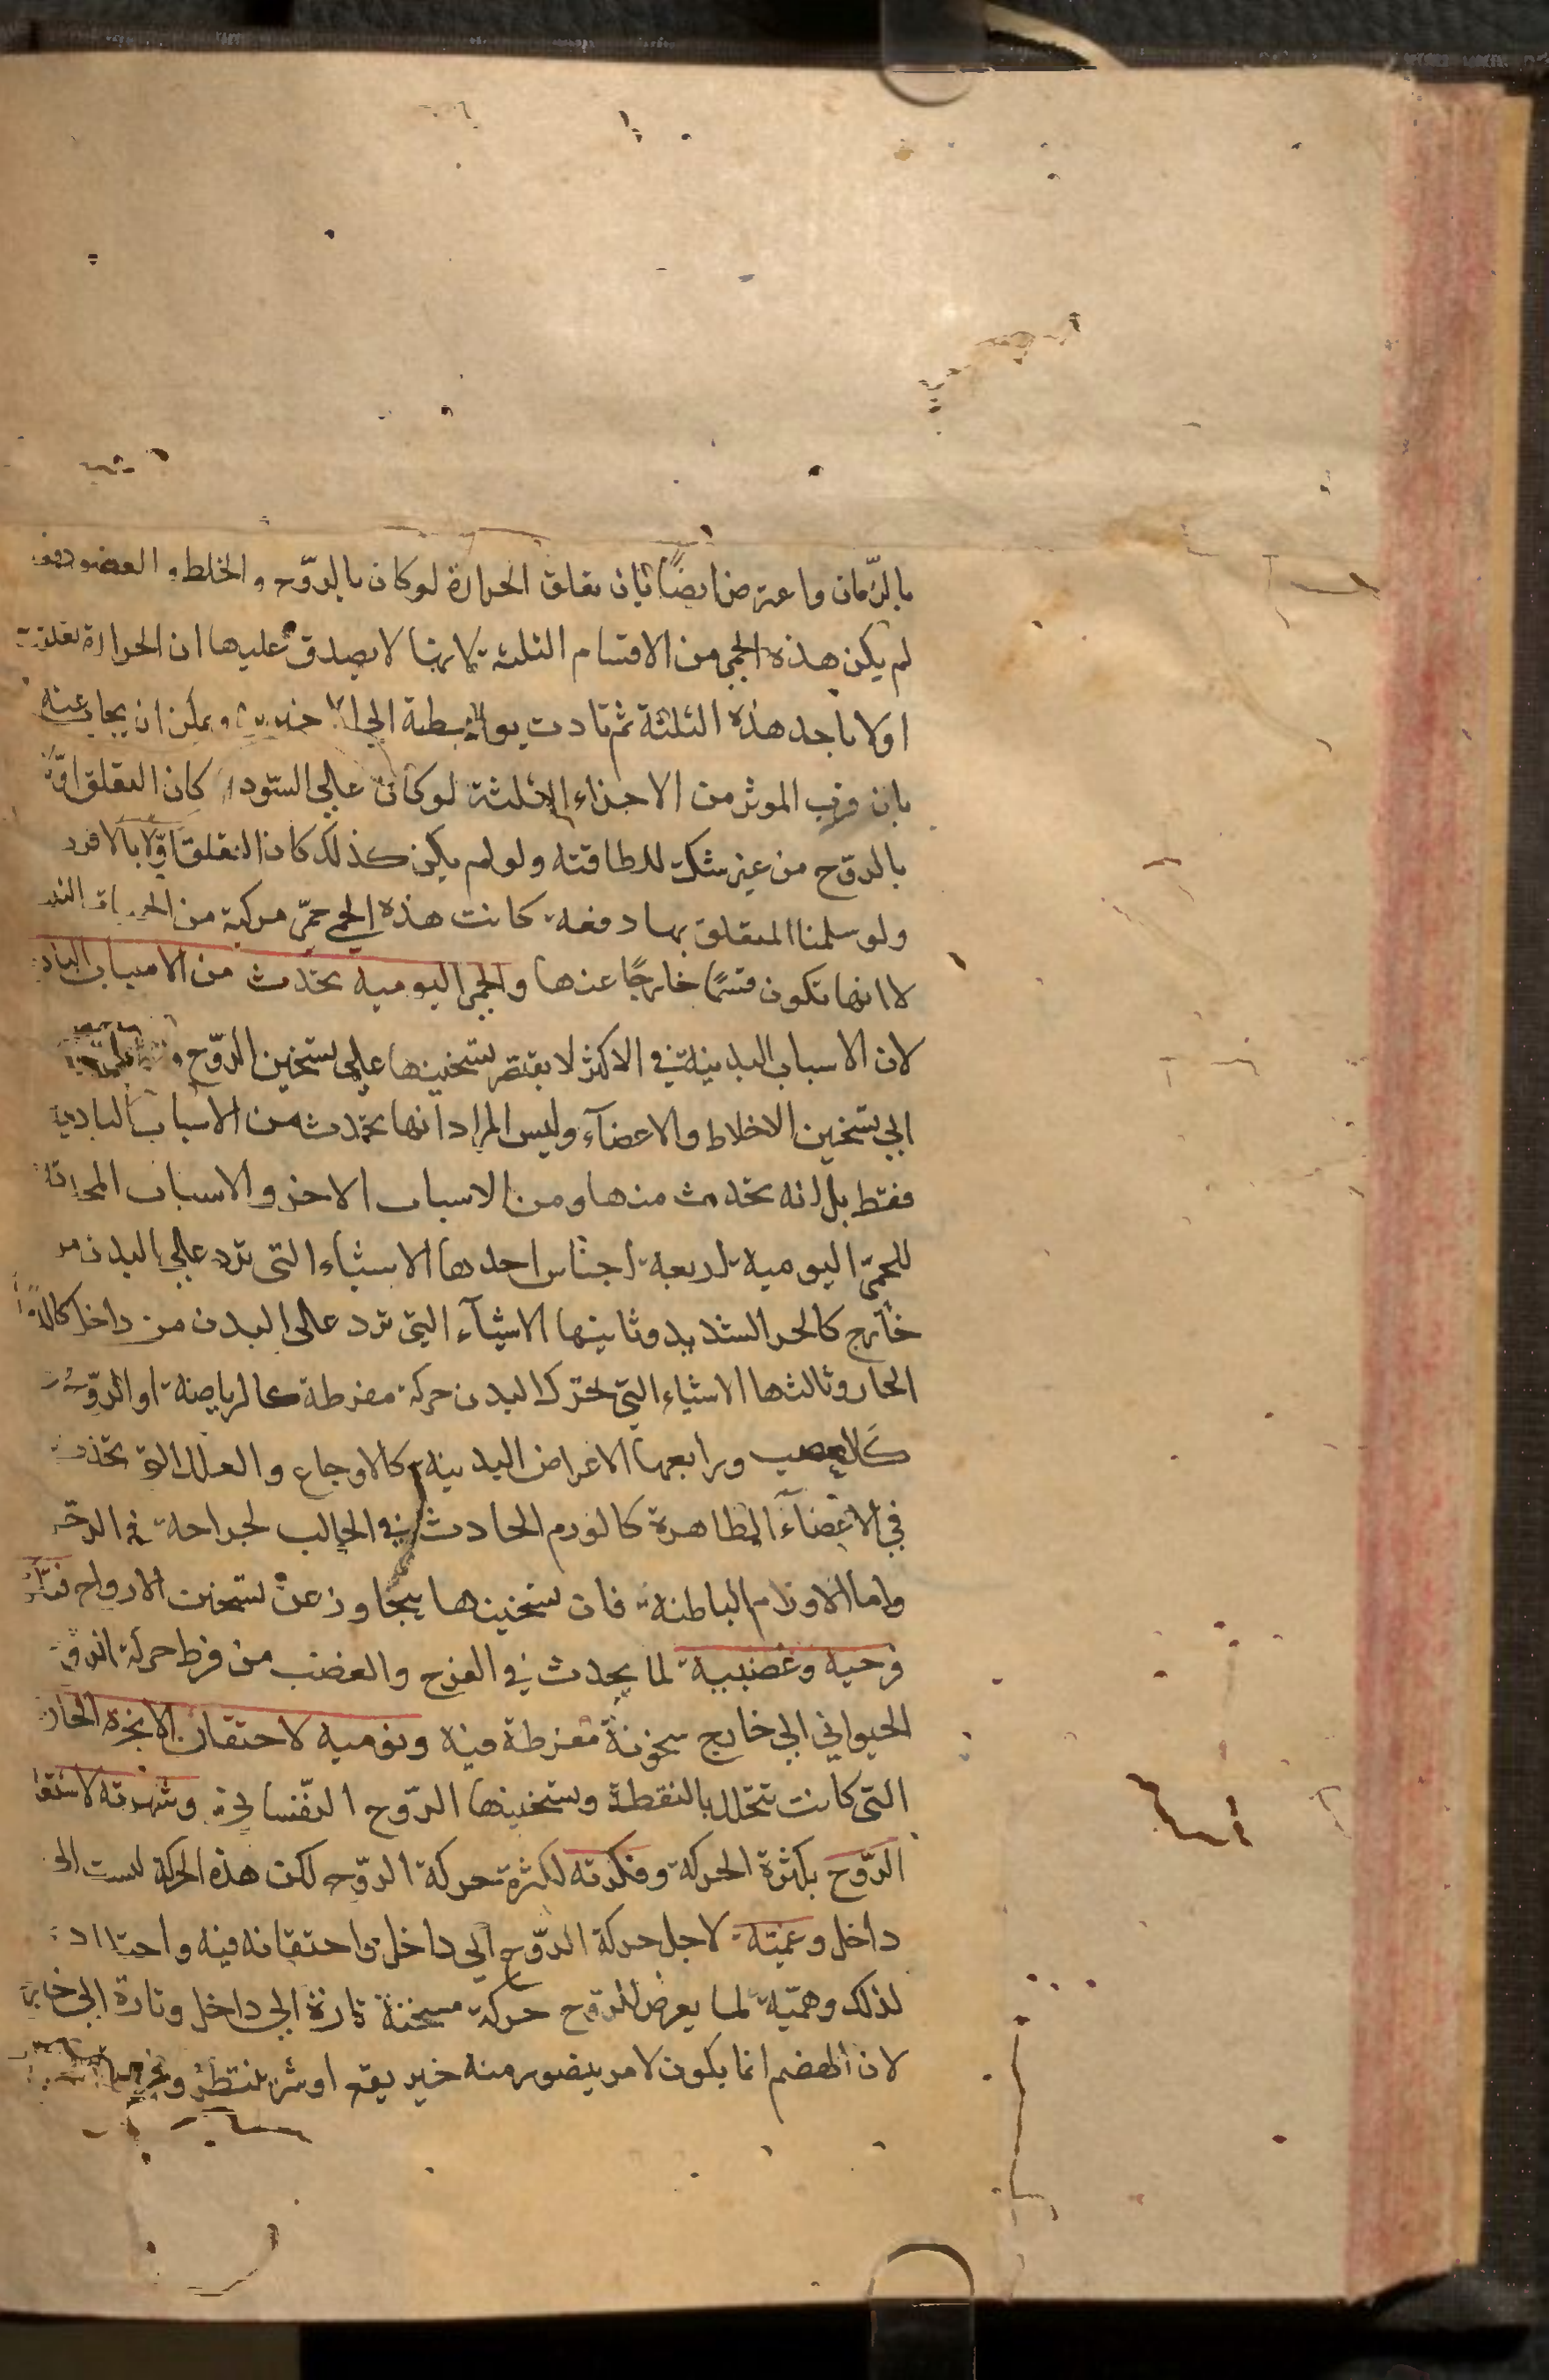 بالزمان واعترض ايضًا بان تعلق الحرارة لو كان بالروّح والخلط والعضو دفعة
لم يكن هذه الحمى من الاقسام الثلثة لانها لا يصدق عليها ان الحرارة تعلقت
اولا باحد هذه الثلثة ثم تادت بواسطة الى الاخيرين ويمكن ان يجاب عنه
بان قرب الموثر من الاجزاء الثلثة لو كان على السّوداء كان التعلق اوّلا
بالروّح من غير شك للطافته ولو لم يكن كذلك كان التعلق اوّلا بالاقرب
ولو سلمنا التعلق بها دفعة كانت هذه الحمى حمّى مركبة من الحميات الثلث
لا انها تكون قسمًا خارجًا عنها والحمى اليومية تحدث من الاسباب البادية
لان الاسباب البدينية في الاكثر لا يقتصر تسخينها على تسخين الروّح
الى تسخين الاخلاط والاعضآء وليس المراد انها تحدث من الاسباب البادية
فقط بل انه تحدث منها ومن الاسباب الاخر والاسباب المحدثة
للحمّى اليومية اربعة اجناس احدها الاشياء التى ترد على البدن من
خارج كالحر الشديد وثانيها الاشيآء التى ترد على البدن من داخل كالدوآء
الحار وثالثها الاشياء التى تحرك البدن حركة مفرطة كالرياضة او الروّح
كالغضب ورابعها الاعراض البدينية كالاوجاع والعلل التى تحدث
في الاعضآء الظاهرة كالورم الحادث في الحالب لجراحة في الرجل
واما الاورام الباطنة فان تسخينها يتجاوز عن تسخين الارواح
فرحية وغضبية لما يحدث في الفرح والغضب من فرط حركة الروح
الحيواني الى خارج سخونة مفرطة فيه ونومية لاحتقان الابخرة الحارة
التى كانت تتحلل بالنقطة وتسخينها الروّح النّفسانى وشهرته لاشتعال
الرّوح بكثرة الحركة وفكرته لكثرة حركة الروّح لكن هذه الحركة ليست الى
داخل وغميّة لاجل حركة الروّح الى داخل واحتقانه فيه واحتداده
لذلك وهميّة لما يعرض للروّح حركة مسخنة تارة الى داخل وتارة الى خارج
لان الهضم انما يكون لامر يتصور منه خير يقع او شر ينتظر